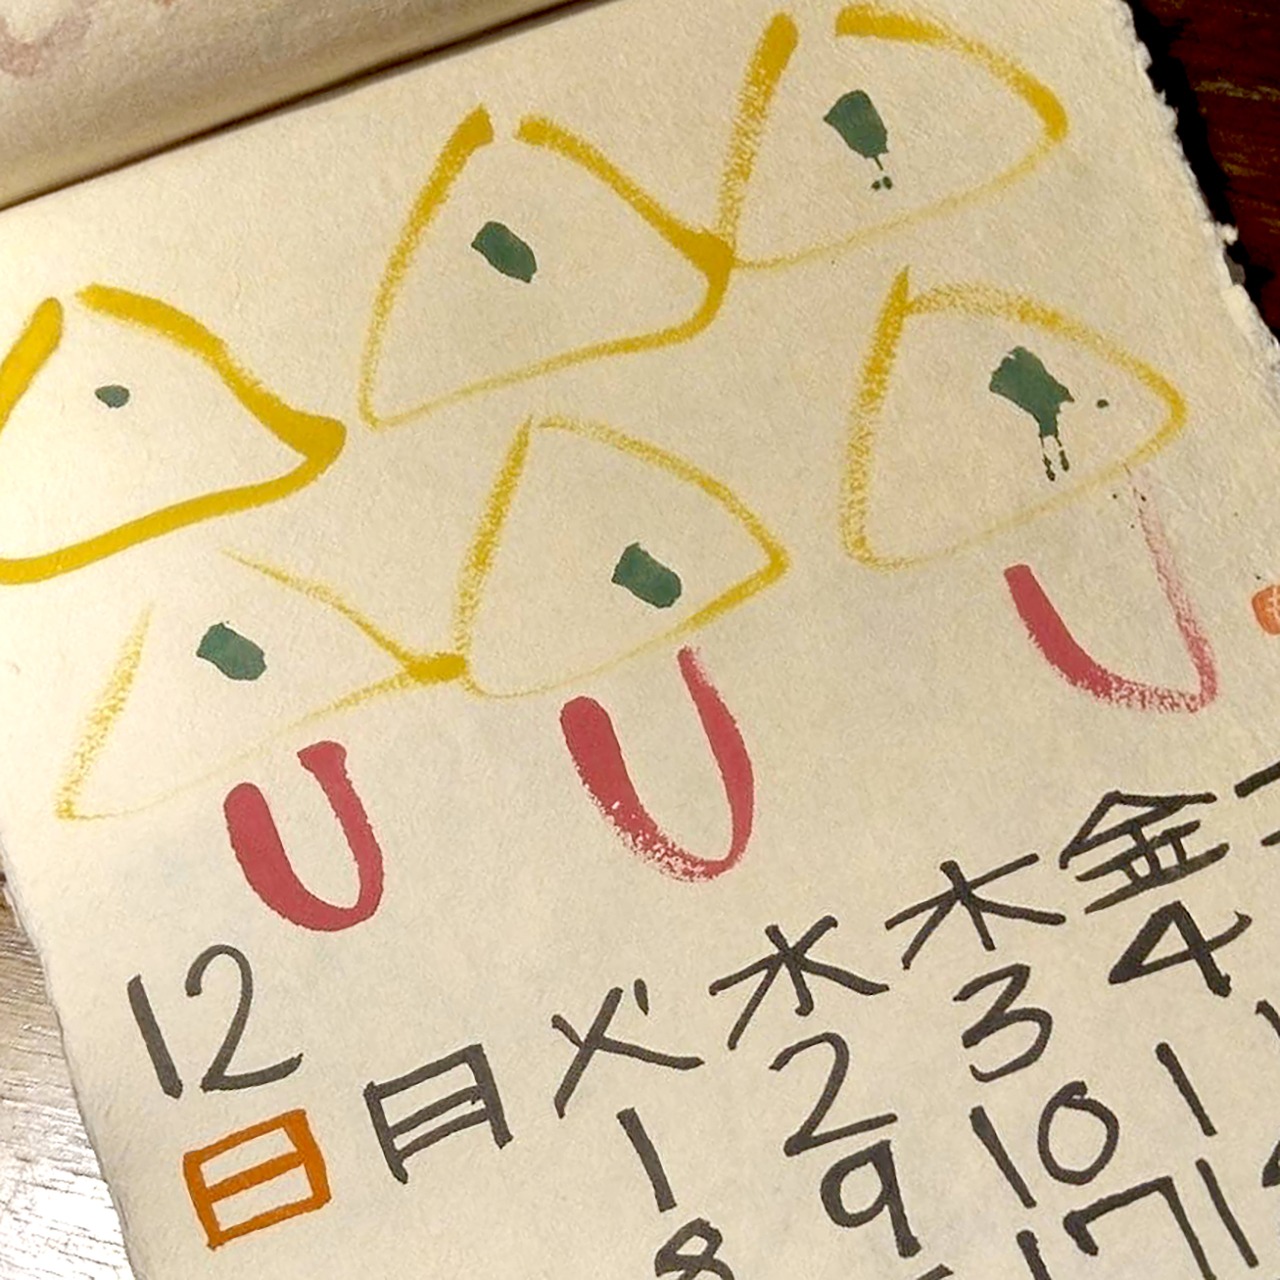 12
日 月 火 水 木 金
1 2 3 4
8 9 10 1
17